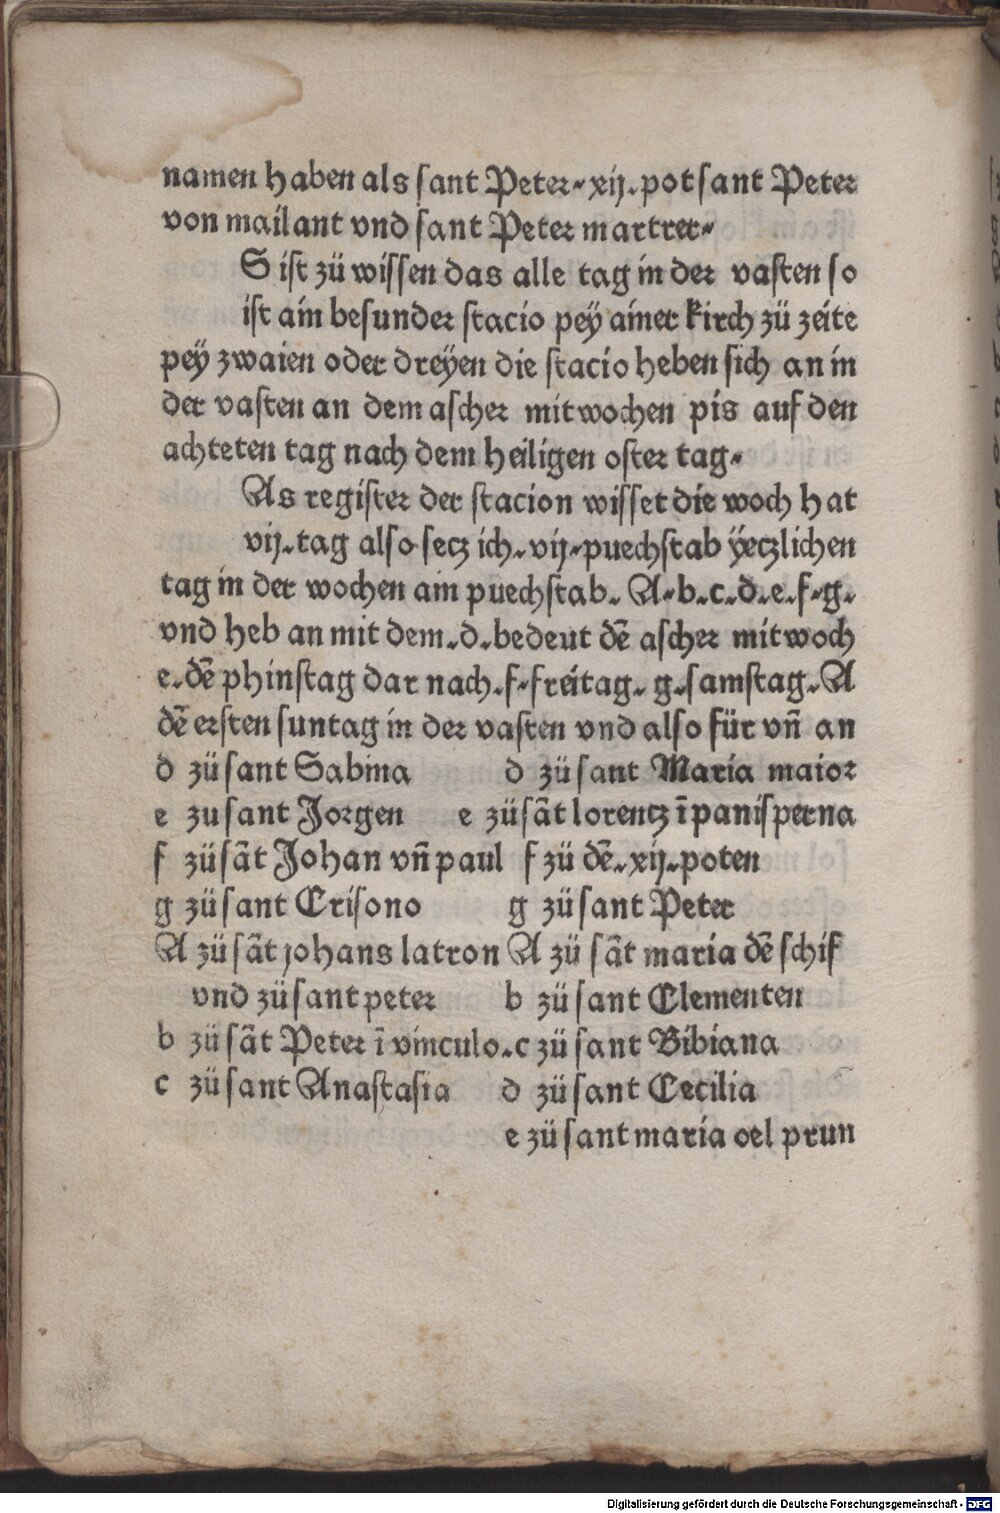 namen haben als sant Peter xij. pot sant Peter
von mailant vnd sant Peter martrer
S ist zü wissen das alle tag in der vasten so
ist ain besunder stacio peÿ ainer kirch zü zeite
peÿ zwaien oder dreÿen die stacio heben sich an in
der vasten an dem ascher mitwochen pis auf den
achteten tag nach dem heiligen oster tag.
As register der stacion wisset die woch hat
vij. tag also secz ich. vij. puechstab ÿeczlichen
tag in der wochen ain puechstab. A. b. c. d. e. f. g.
vnd heb an mit dem. d. bedeut dē ascher mitwoch
e. dē phinstag dar nach. f. freitag. g. samstag. A
dē ersten suntag in der vasten vnd also für vn̄ an
d zü sant Sabina d zü sant Maria maior
e zu sant Jorgen e zü sāt lorencz ī panisperna
f zü sāt Johan vn̄ paul f zü dē. xij. poten
g zü sant Crisono g zü sant Peter
A zü sāt johans latron A zü sāt maria dē schif
vnd zü sant peter b zü sant Clementen
b zü sāt Peter ī vinculo. c zü sant Bibiana
c zü sant Anastasia d zü sant Cecilia
e zü sant maria oel prun
Digitalisierung gefördert durch die Deutsche Forschungsgemeinschaft - DFG